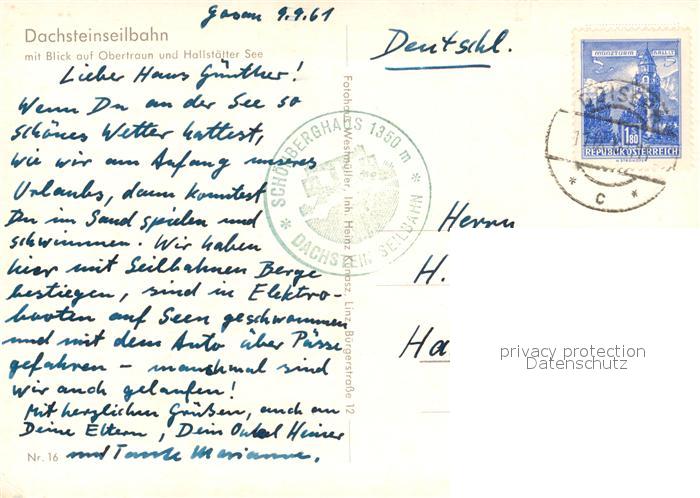 Gosau 9.9.61
Dachsteinseilbahn
mit Blick auf Obertraun und Hallstätter See
Lieber Hans Günther!
Wenn Du an der See so
schönes Wetter hattest,
wie wir am Anfang unseres
Urlaubs, dann konntest
Du im Sand spielen und
schwimmen. Wir haben
hier mit Seilbahnen Berge
bestiegen, sind in Elektro-
booten auf Seen geschwommen
und mit dem Auto über Pässe
gefahren – manchmal sind
wir auch gelaufen!
Mit herzlichen Grüßen, auch an
Deine Eltern, Dein Onkel Heiner
und Tante Marianne.
Nr. 16
Fotohaus Westmüller, Inh. Heinz Kunasz, Linz, Bürgerstraße 12
SCHÖNBERGHAUS 1350 m
DACHSTEIN SEILBAHN
Deutschl.
MÜNZTURM HALL I.T.
1.80
REPUBLIK ÖSTERREICH
c
Herrn
H.
Ha
privacy protection
Datenschutz